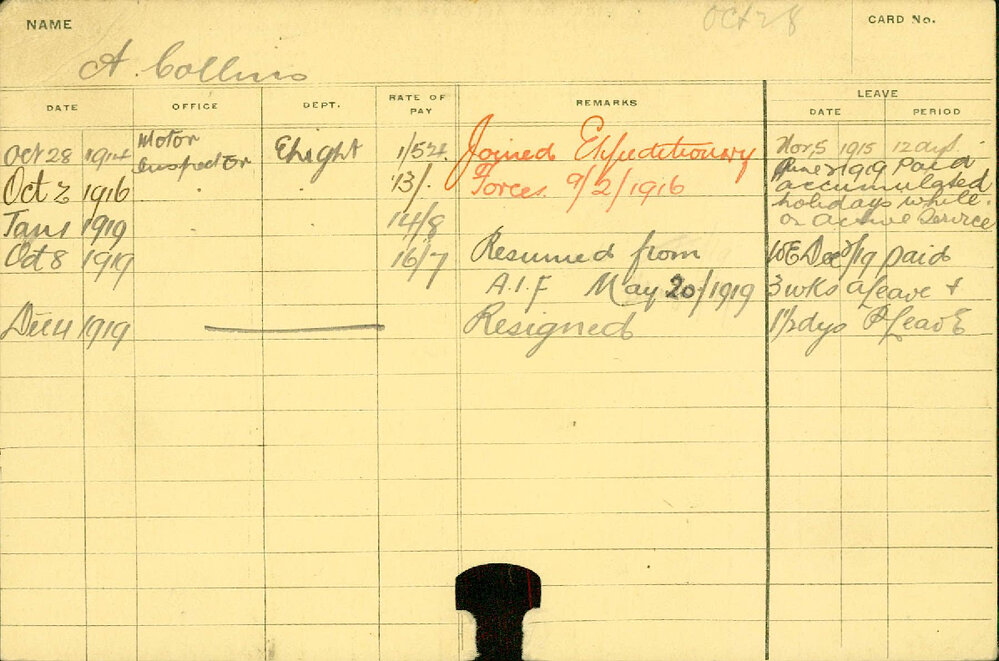 NAME
Oct 28
CARD No.
A. Collins
DATE OFFICE DEPT. RATE OF PAY REMARKS LEAVE
DATE PERIOD
Oct 28 1914 Motor Inspector E Light Joined Expeditionary Nov 5 1915 12 days
Oct 2 1916 13/. Forces. 9/2/1916 June 2 1919 Paid
accumulated
holidays while
on Active Service
Jan 1 1919 14/8
Oct 8 1919 16/7 Resumed from Dec /19 paid
A.I.F May 20/1919 3 wks a leave +
Dec 4 1919 Resigned 1½ dys P leave